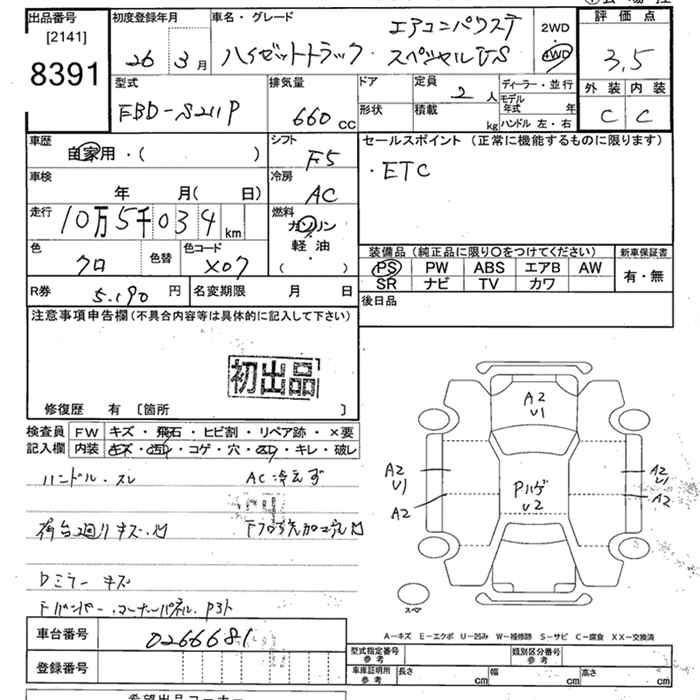 出品番号
[2141]
8391
初度登録年月
26 3月
車名・グレード
エアコンパワステ
ハイゼットトラック・スペシャルVS
2WD
4WD
評価点
3.5
外装 内装
C C
型式
EBD-S211P
排気量
660cc
ドア
形状
定員
2人
積載
kg
ディーラー・並行
モデル年式 年
ハンドル 左・右
車歴
自家用・( )
シフト
F5
セールスポイント (正常に機能するものに限ります)
・ETC
車検
年 月( 日)
冷房
AC
走行
10万5千034km
燃料
ガソリン
軽油
( )
色
クロ
色替
色コード
X07
装備品(純正品に限り○をつけてください)
PS PW ABS エアB AW
SR ナビ TV カワ
新車保証書
有・無
R券
5.190円
名変期限 月 日
後日品
注意事項申告欄(不具合内容等は具体的に記入して下さい)
初出品
修復歴 有 [箇所 ]
検査員記入欄
FW キズ・飛石・ヒビ割・リペア跡・×要
内装 キズ・コゲ・穴・キレ・破レ
ハンドル・スレ
AC冷えず
荷台廻りキズ・凹
Dミラー キズ
Fバンパー・コーナーパネル P3ト
A2
U1
A2
U1
A2
Pハゲ
U2
A2
U1
A2
スペア
A-キズ E-エクボ U-凹み W-補修跡 S-サビ C-腐食 XX-交換済
車台番号
0266681
登録番号
型式指定番号
参考
類別区分番号
参考
車庫証明用
参考
長さ cm
幅 cm
高さ cm
希望出品コーナー